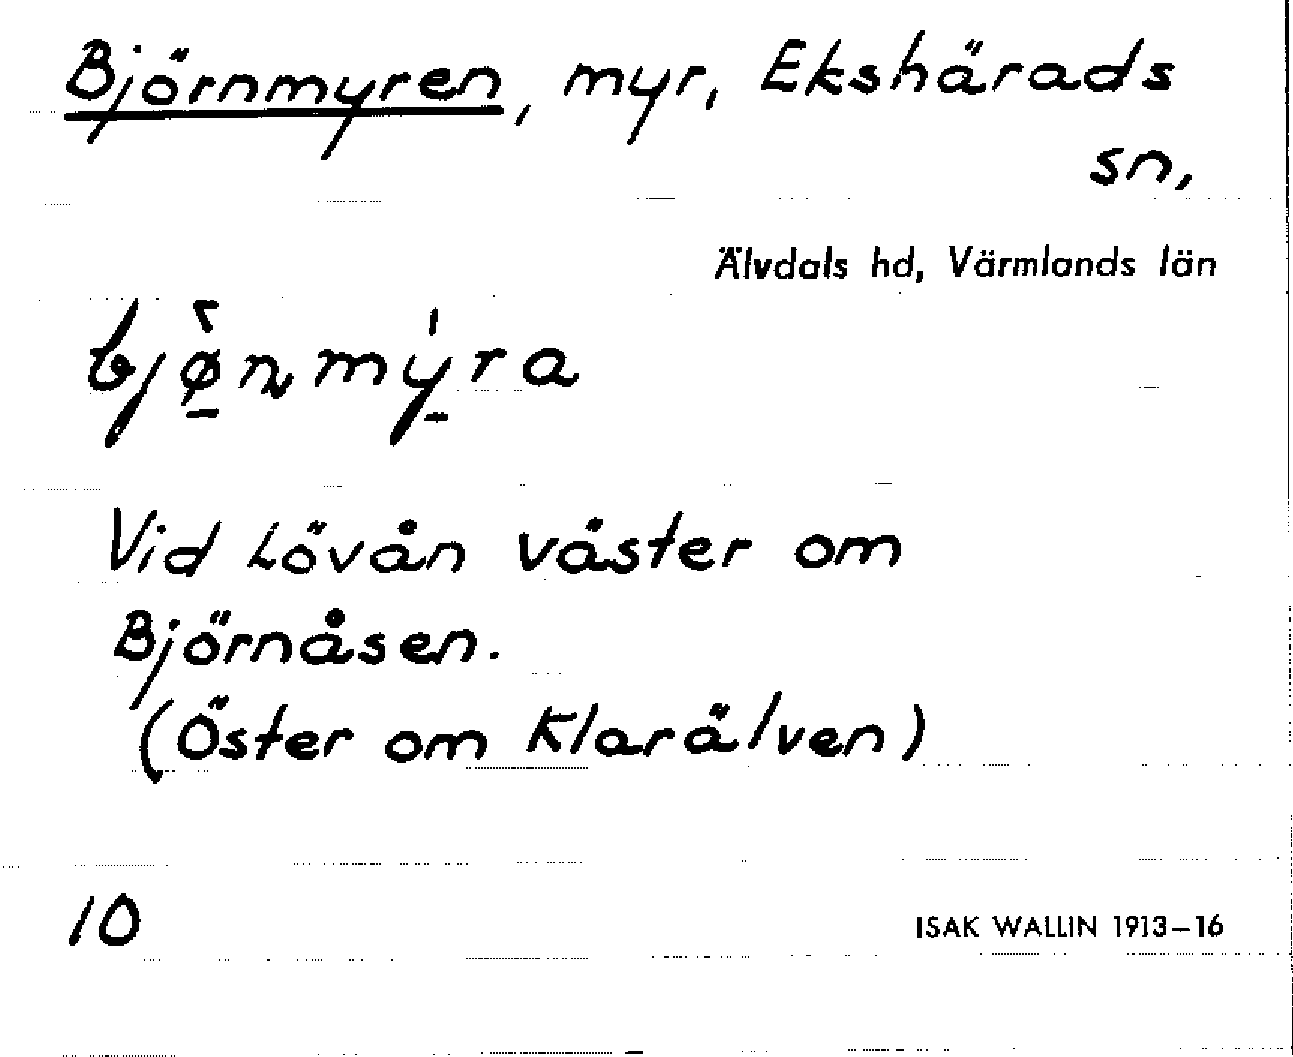 Björnmyren, myr, Ekshärads
sn,
Älvdals hd, Värmlands län
bjø̱̀n mý̱ra
Vid Lövån väster om
Björnåsen.
(Öster om Klarälven)
10
ISAK WALLIN 1913–16